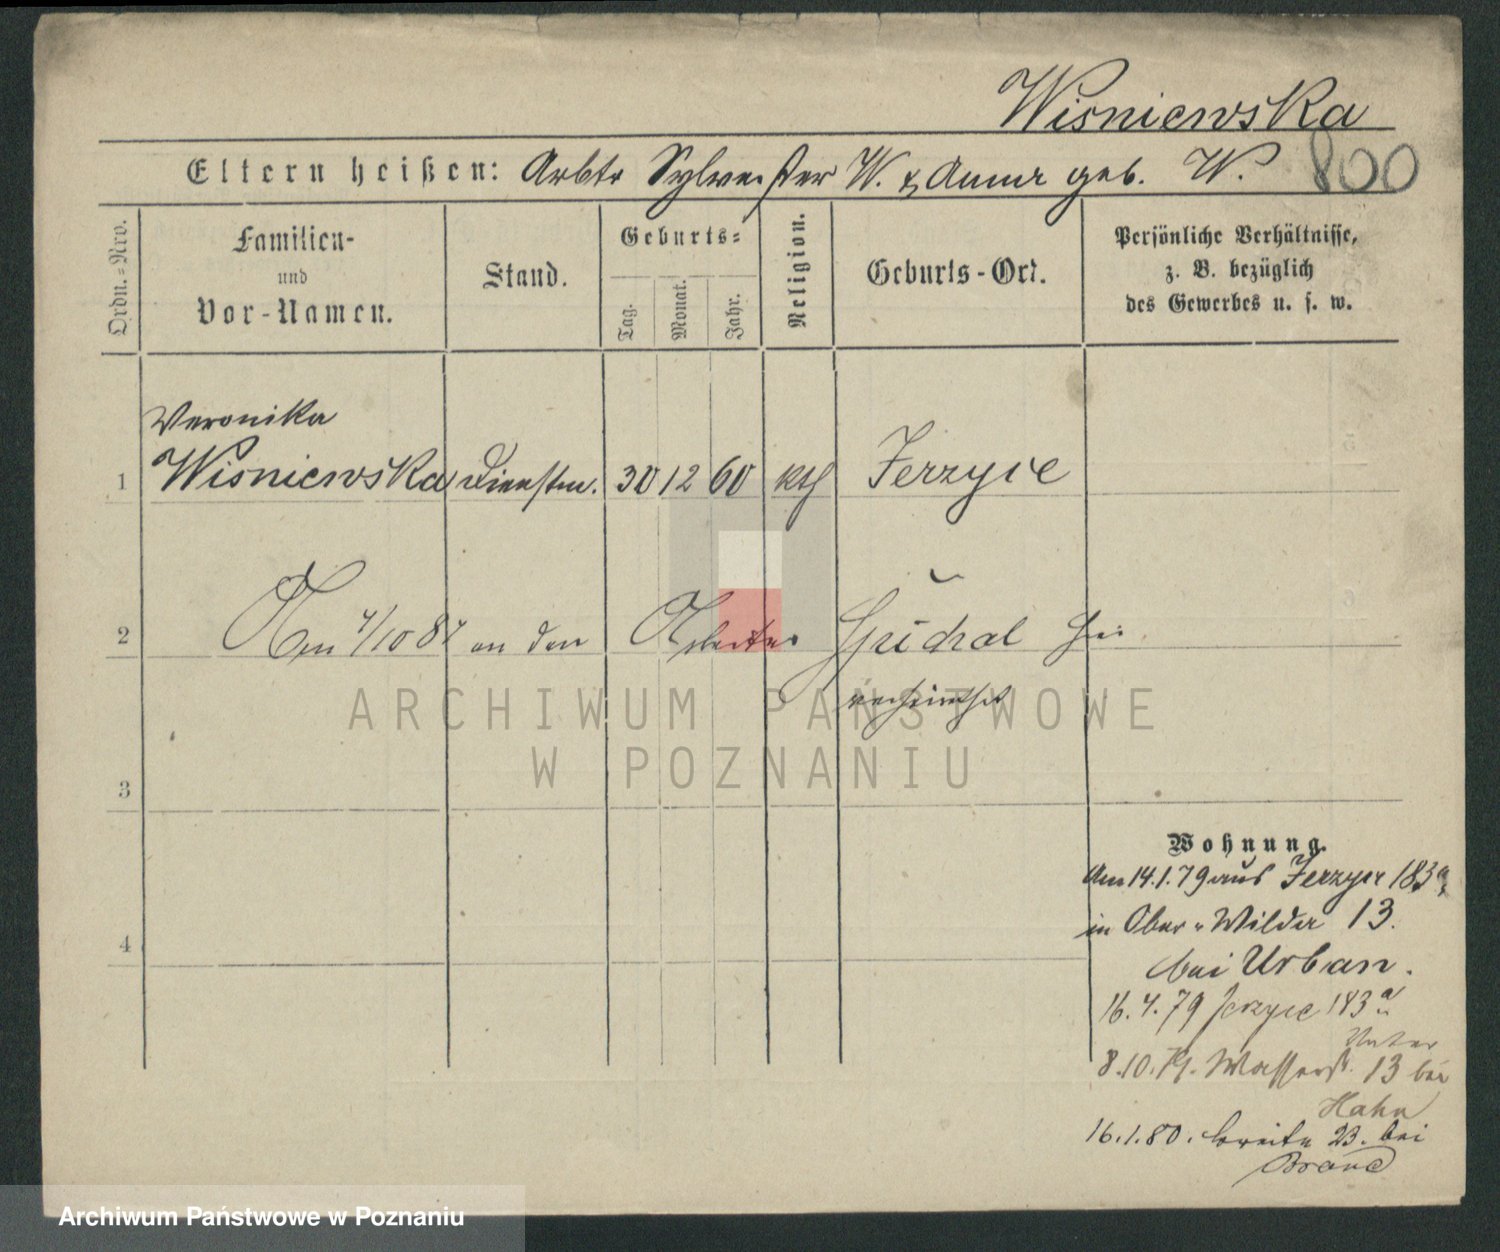 Wisniewska
Eltern heißen: Arbtr Sylvester W. & Anna geb. W. 800
Ordn.-Nro.
Familien-
und
Vor-Namen.
Stand.
Geburts-
Tag.
Monat.
Jahr.
Religion.
Geburts-Ort.
Persönliche Verhältnisse,
z. B. bezüglich
des Gewerbes u. s. w.
Veronika
1 Wisniewska Dienstm. 30 12 60 kth Jerzyce
2 Am 4/10 87 an den Arbeiter hier
verheirathet
ARCHIWUM PAŃSTWOWE
W POZNANIU
3
4
Wohnung.
Am 14.1.79 aus Jerzyce 183a
in Ober-Wilda 13.
bei Urban.
16.4.79 Jerzyce 183a
Unter
8.10.79. Wasserst. 13 bei
Hahn
16.1.80. breite 23. bei
Brand
Archiwum Państwowe w Poznaniu